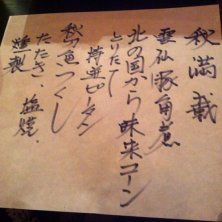 秋満載
雲仙豚角煮
北の国から 味来コーン
とりたて
特選ピータン
秋刀魚づくし
たたき、塩焼
燻製